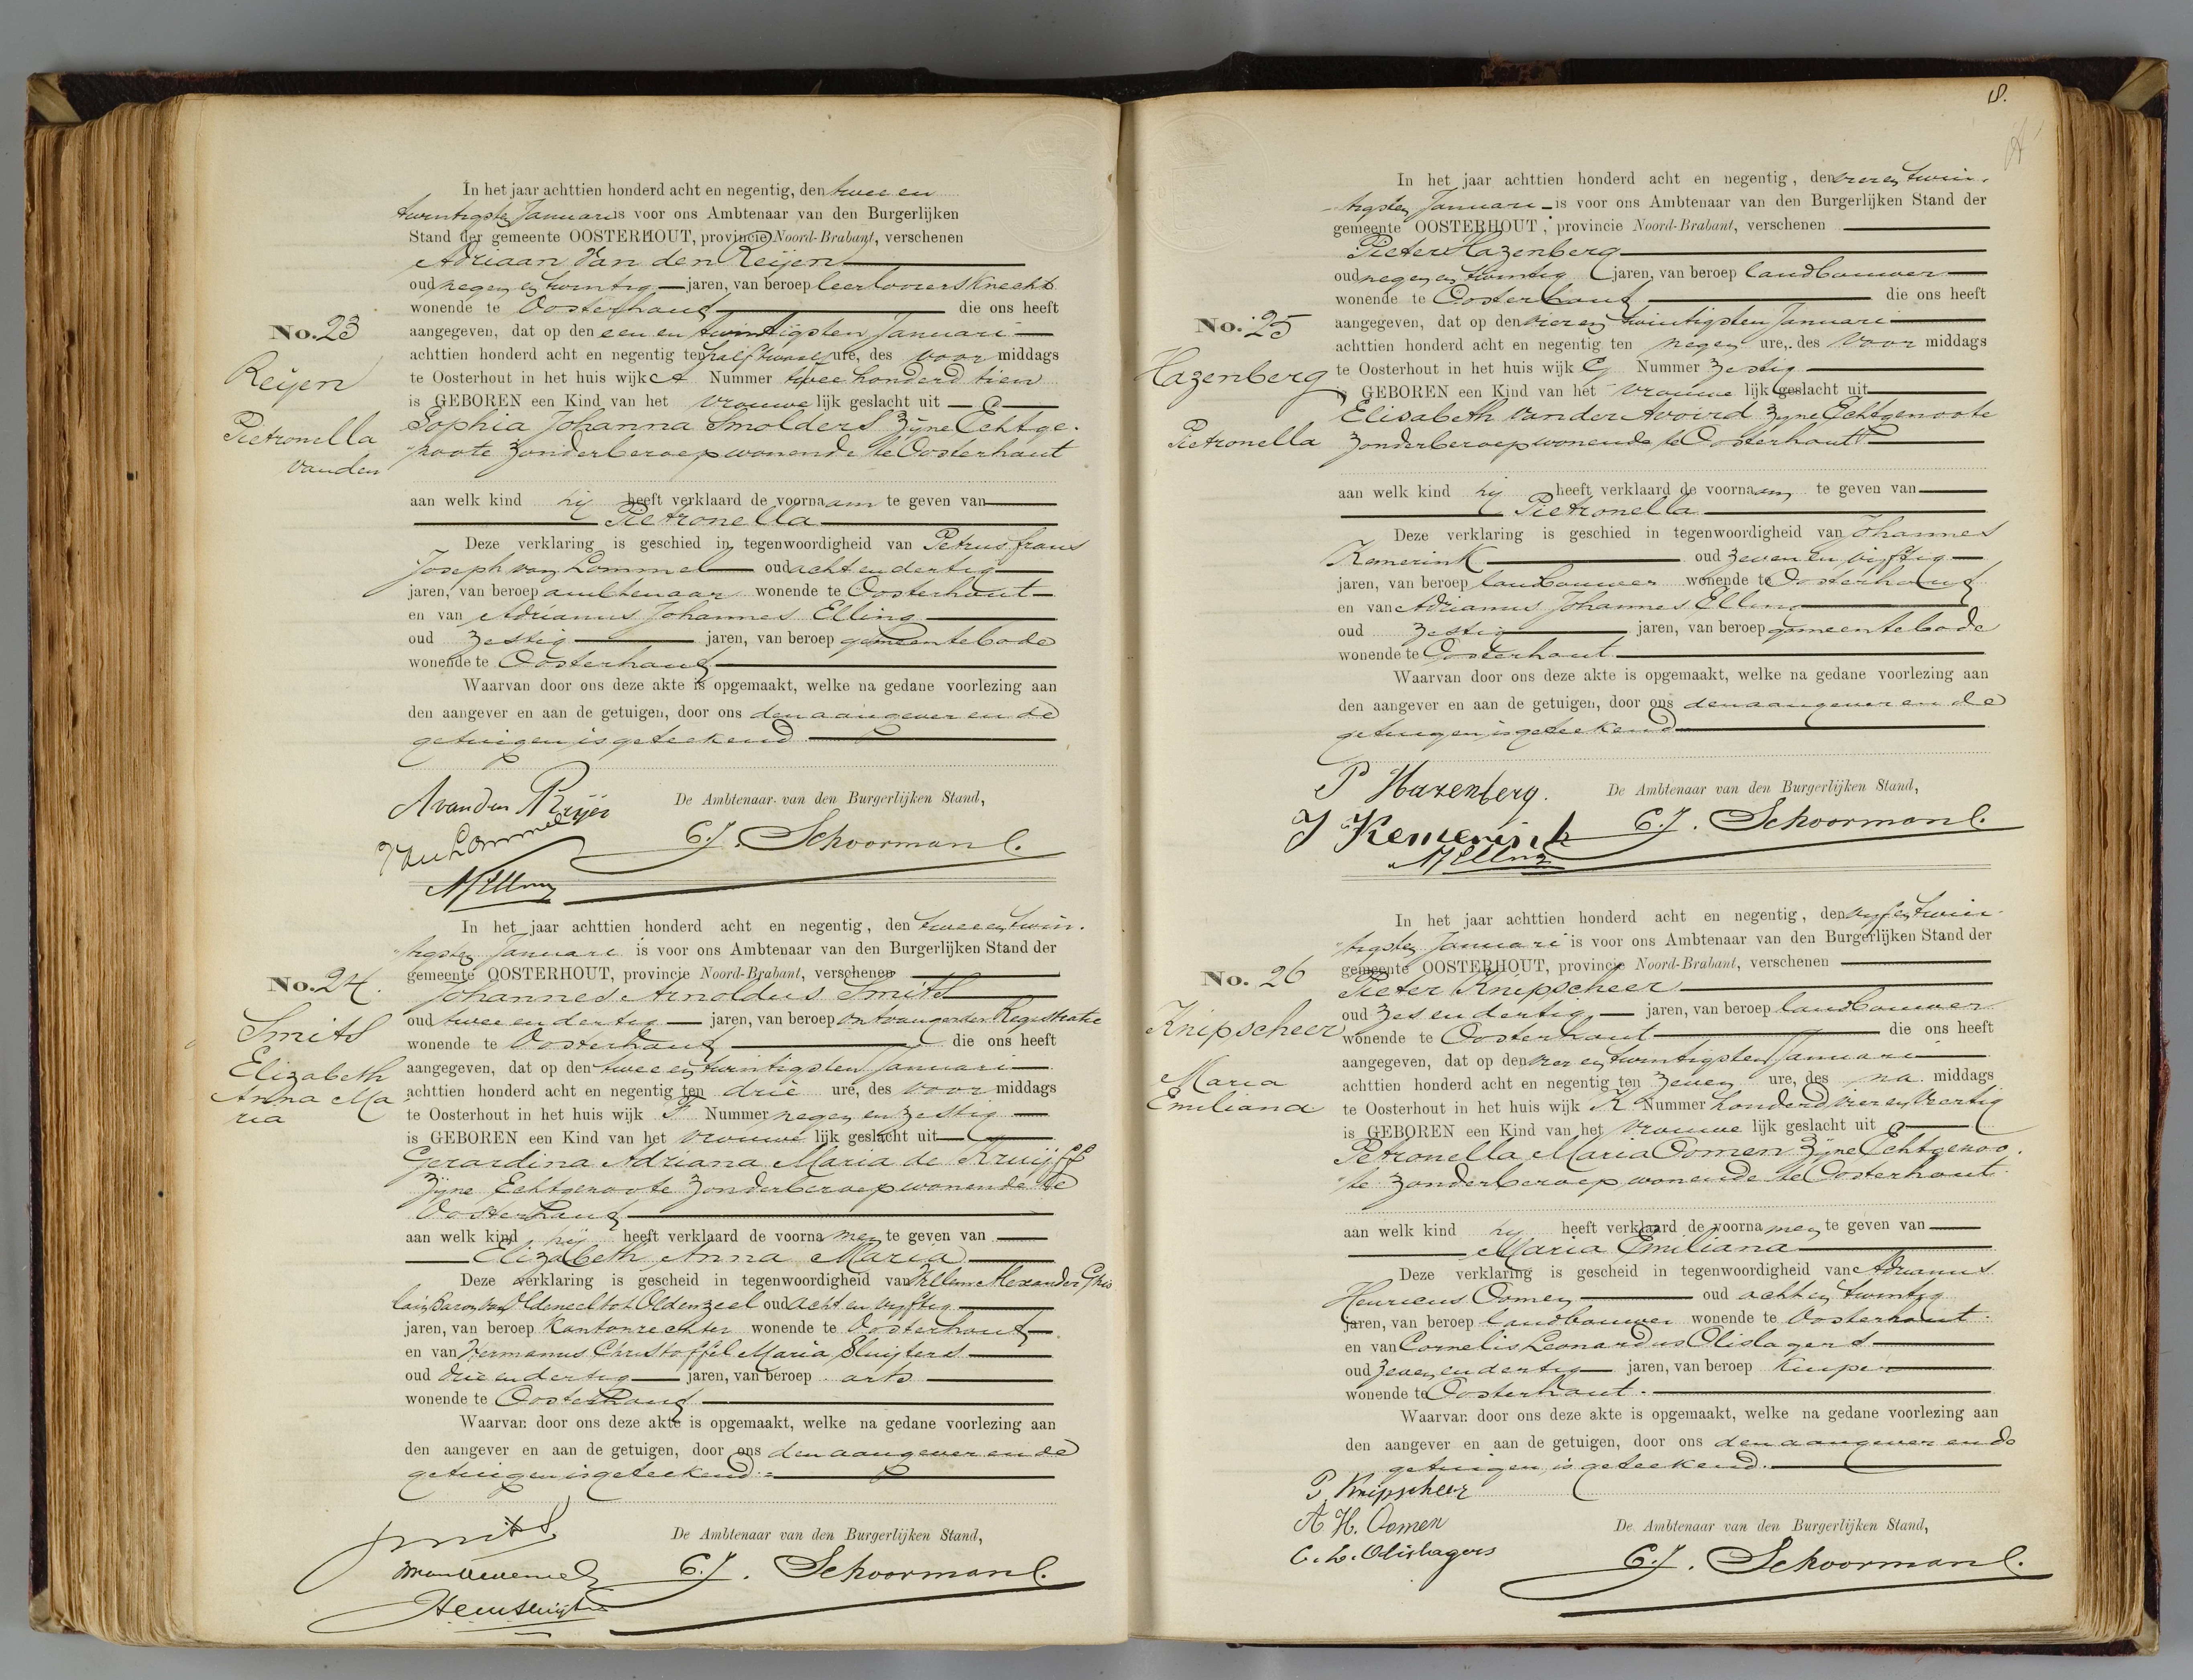 In het jaar achttien honderd acht en negentig, den twee en
twintigsten Januari is voor ons Ambtenaar van den Burgerlijken
Stand der gemeente OOSTERHOUT, provincie Noord-Brabant, verschenen
Adriaan van den Reijen
oud negen en twintig jaren, van beroep leerlooiersknecht
wonende te Oosterhout die ons heeft
No. 23
aangegeven, dat op den een en twintigsten Januari
achttien honderd acht en negentig ten half twaalf ure, des voor middags
Reijen
te Oosterhout in het huis wijk A Nummer twee honderd tien
is GEBOREN een Kind van het vrouwe lijk geslacht uit
Pietronella
Sophia Johanna Smolders zijne Echtge-
vanden
noote zonder beroep wonende te Oosterhout
aan welk kind hij heeft verklaard de voornaam te geven van
Pietronella
Deze verklaring is geschied in tegenwoordigheid van Petrus frans
Joseph van Lommel oud acht en dertig
jaren, van beroep ambtenaar wonende te Oosterhout
en van Adrianus Johannes Elling
oud zestig jaren, van beroep gemeentebode
wonende te Oosterhout
Waarvan door ons deze akte is opgemaakt, welke na gedane voorlezing aan
den aangever en aan de getuigen, door ons den aangever en de
getuigen is geteekend
A van den Reijen
De Ambtenaar van den Burgerlijken Stand,
van Lommel
C. J. Schoormans.
AJ Elling
In het jaar achttien honderd acht en negentig, den twee en twin-
tigsten Januari is voor ons Ambtenaar van den Burgerlijken Stand der
No. 24.
gemeente OOSTERHOUT, provincie Noord-Brabant, verschenen
Johannes Arnoldus Smits
oud twee en dertig jaren, van beroep ontvanger der Registratie
Smits
wonende te Oosterhout die ons heeft
Elizabeth
aangegeven, dat op den twee en twintigsten Januari
Anna Ma
achttien honderd acht en negentig ten drie ure, des voor middags
ria
te Oosterhout in het huis wijk F Nummer negen en zestig
is GEBOREN een Kind van het vrouwe lijk geslacht uit
Gerardina Adriana Maria de Kruijff
zijne Echtgenoote zonder beroep wonende te
Oosterhout
aan welk kind hij heeft verklaard de voorna men te geven van
Elizabeth Anna Maria
Deze verklaring is gescheid in tegenwoordigheid van Willem Alexander Ghis
lain Baron van Oldeneel tot Oldenzeel oud acht en vijftig
jaren, van beroep Kantonrechter wonende te Oosterhout
en van Hermanus Christoffel Maria Sluijters
oud drie en dertig jaren, van beroep arts
wonende te Oosterhout
Waarvan door ons deze akte is opgemaakt, welke na gedane voorlezing aan
den aangever en aan de getuigen, door ons den aangever en de
getuigen is geteekend.
Smits
De Ambtenaar van den Burgerlijken Stand,
C. J. Schoormans.
18.
In het jaar achttien honderd acht en negentig, den vier en twin-
tigsten Januari is voor ons Ambtenaar van den Burgerlijken Stand der
gemeente OOSTERHOUT, provincie Noord-Brabant, verschenen
Pieter Hazenberg
oud negen en twintig jaren, van beroep landbouwer
wonende te Oosterhout die ons heeft
No. 25
aangegeven, dat op den vier en twintigsten Januari
achttien honderd acht en negentig ten negen ure, des voor middags
Hazenberg
te Oosterhout in het huis wijk G Nummer zestig
is GEBOREN een Kind van het vrouwe lijk geslacht uit
Elisabeth van der Avoird zijne Echtgenoote
Pietronella
zonder beroep wonende te Oosterhout
aan welk kind hij heeft verklaard de voornaam te geven van
Pietronella
Deze verklaring is geschied in tegenwoordigheid van Johannes
Kemerink oud zeven en vijftig
jaren, van beroep landbouwer wonende te Oosterhout
en van Adrianus Johannes Elling
oud zestig jaren, van beroep gemeentebode
wonende te Oosterhout
Waarvan door ons deze akte is opgemaakt, welke na gedane voorlezing aan
den aangever en aan de getuigen, door ons den aangever en de
getuigen is geteekend
P Hazenberg.
De Ambtenaar van den Burgerlijken Stand,
J Kemerink
C. J. Schoormans.
AJ Elling
In het jaar achttien honderd acht en negentig, den vijf en twin-
tigsten Januari is voor ons Ambtenaar van den Burgerlijken Stand der
No. 26
gemeente OOSTERHOUT, provincie Noord-Brabant, verschenen
Pieter Knipscheer
oud zes en dertig jaren, van beroep landbouwer
Knipscheer
wonende te Oosterhout die ons heeft
aangegeven, dat op den vier en twintigsten Januari
Maria
achttien honderd acht en negentig ten zeven ure, des na middags
Emiliana
te Oosterhout in het huis wijk K Nummer honderd vier en veertig
is GEBOREN een Kind van het vrouwe lijk geslacht uit
Petronella Maria Oomen zijne Echtgenoo-
te zonder beroep wonende te Oosterhout
aan welk kind hij heeft verklaard de voorna men te geven van
Maria Emiliana
Deze verklaring is gescheid in tegenwoordigheid van Adrianus
Henricus Oomen oud acht en twintig
jaren, van beroep landbouwer wonende te Oosterhout
en van Cornelis Leonardus Olislagers
oud zeven en dertig jaren, van beroep kuiper
wonende te Oosterhout
Waarvan door ons deze akte is opgemaakt, welke na gedane voorlezing aan
den aangever en aan de getuigen, door ons den aangever en de
getuigen is geteekend.
P. Knipscheer
A. H. Oomen
De Ambtenaar van den Burgerlijken Stand,
C. L. Olislagers
C. J. Schoormans.